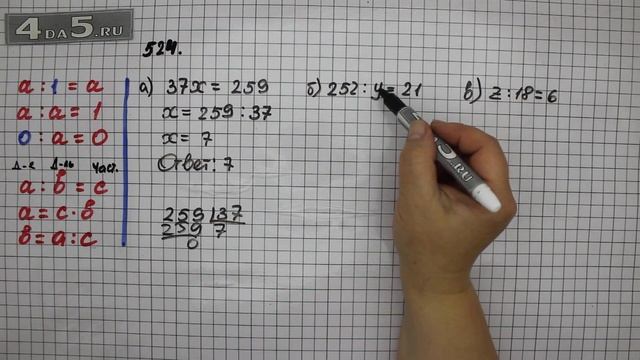 4DA5.RU
524.
a : 1 = a
a : a = 1
0 : a = 0
Д-е Д-ль Част.
a : b = c
a = c · b
b = a : c
а) 37x = 259
x = 259 : 37
x = 7
Ответ: 7
259 | 37
259 7
0
б) 252 : y = 21
в) z : 18 = 6